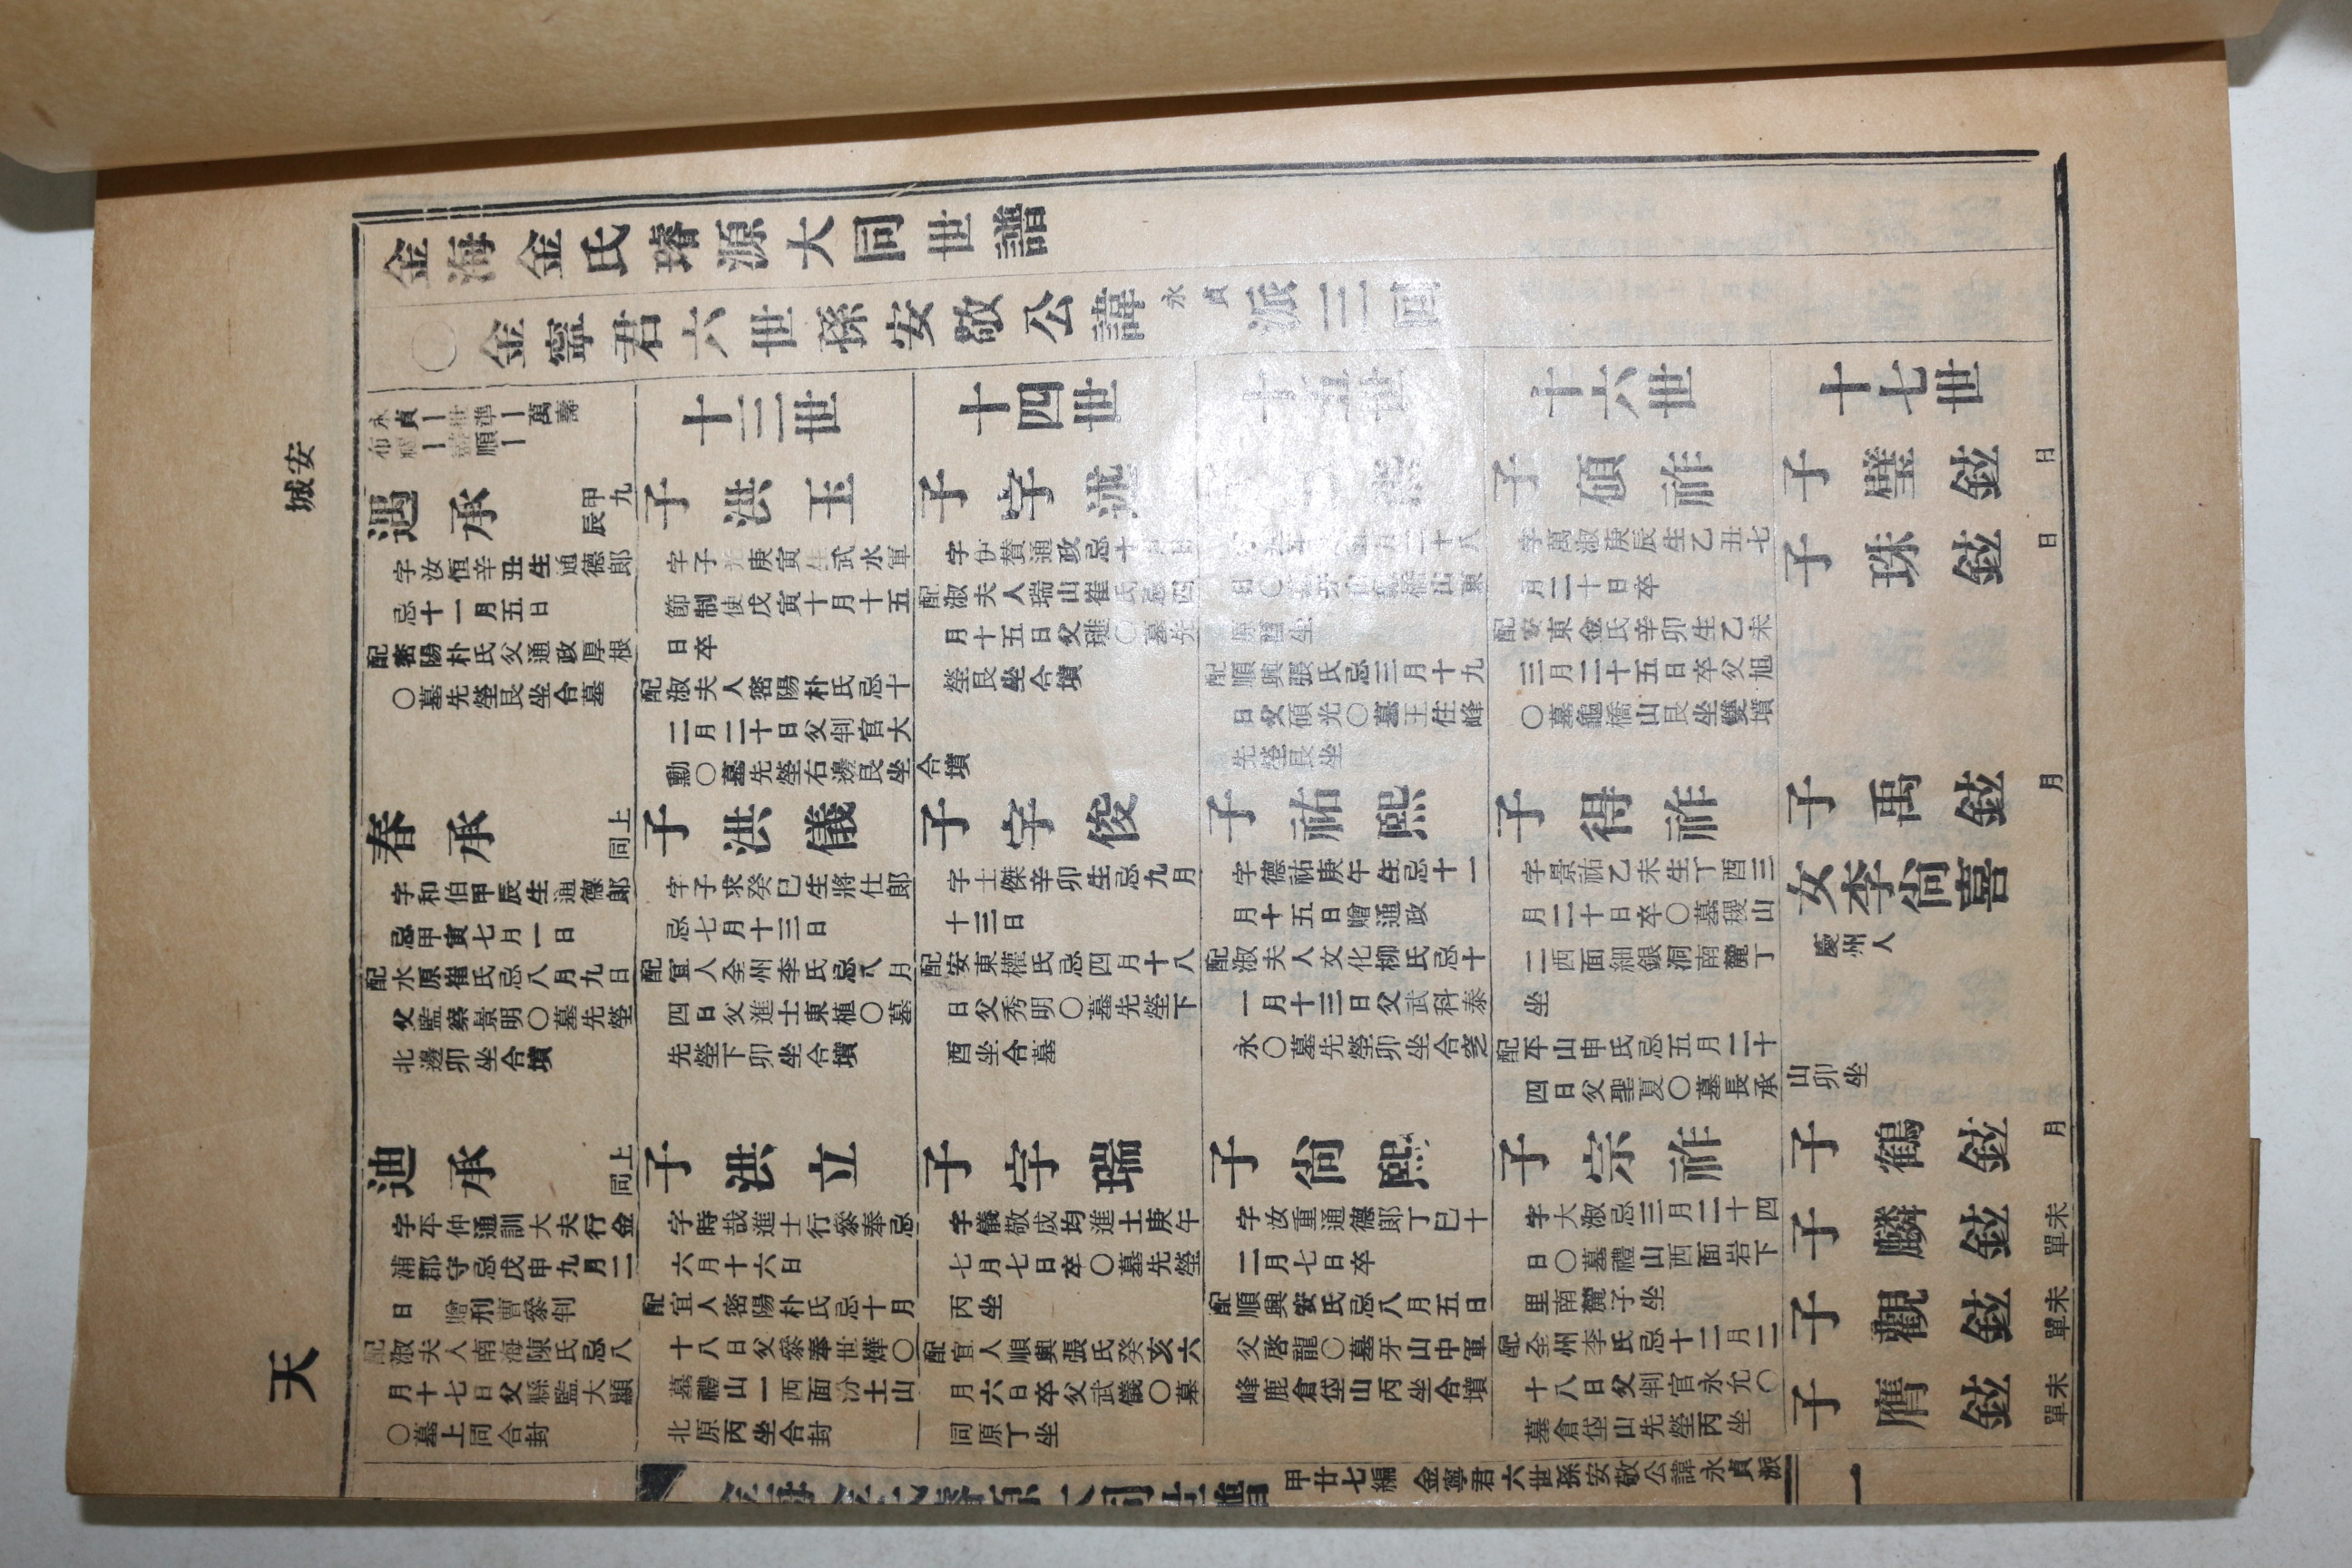 安城
天
金海金氏璿源大同世譜
〇金寧君六世孫安敬公諱永貞派三回
永貞ー世準ー萬壽
順ー
遇承 甲九辰
字汝恒辛丑生通德郞
忌十一月五日
配密陽朴氏父通政厚根
〇墓先塋艮坐合墓
春承 上同
字和伯甲辰生通德郞
忌甲寅七月一日
配水原崔氏忌八月九日
父監察景明〇墓先塋
北邊卯坐合墳
迪承 上同
字平仲通訓大夫行金
浦郡守忌戊申九月二
日 贈刑曹參判
配淑夫人南海陳氏忌八
月十七日父縣監大顯
〇墓上同合封
十三世
子洪玉
字子光庚寅生武水軍
節制使戊寅十月十五
日卒
配淑夫人密陽朴氏忌十
二月二十日父判官大
勳〇墓先塋右邊艮坐
合墳
子洪儀
字子求癸巳生將仕郞
忌七月十三日
配宜人全州李氏忌八月
四日父進士東植〇墓
先塋下卯坐合墳
子洪立
字時哉進士行參奉忌
六月十六日
配宜人密陽朴氏忌十月
十八日父參奉世燁〇
墓禮山一西面汾土山
北原丙坐合封
十四世
子字述
字伊賛通政忌十月日
配淑夫人瑞山崔氏忌四
月十五日父璡〇墓先
塋艮坐合墳
子字俊
字士傑辛卯生忌九月
十三日
配安東權氏忌四月十八
日父秀明〇墓先塋下
酉坐合墓
子字瑞
字儀敬成均進士庚午
七月七日卒〇墓先塋
丙坐
配宜人順興張氏癸亥六
月六日卒父武儀〇墓
同原丁坐
十五世
原酉坐
配順興張氏忌三月十九
日父碩光〇墓王住峰
先塋艮坐
子祐熙
字德祐庚午生忌十一
月十五日贈通政
配淑夫人文化柳氏忌十
一月十三日父武科泰
永〇墓先塋卯坐合窆
子尙熙
字汝重通德郞丁巳十
二月七日卒
配順興安氏忌八月五日
父啓龍〇墓牙山中軍
峰鹿倉垈山丙坐合墳
十六世
子碩祚
字萬淑庚辰生乙丑七
月二十日卒
配安東金氏辛卯生乙未
三月二十五日卒父旭
〇墓龜橋山艮坐雙墳
子得祚
字景祐乙未生丁酉三
月二十日卒〇墓稷山
二西面細銀洞南麓丁
坐
配平山申氏忌五月二十
四日父聖夏〇墓長承
山卯坐
子宗祚
字大淑忌三月二十四
日〇墓禮山西面岩下
里南麓子坐
配全州李氏忌十二月二
十八日父判官永允〇
墓倉垈山先塋丙坐
十七世
子璧鉉 日
子珠鉉 日
子禹鉉 月
女李尙喜
慶州人
子鶴鉉 月
子麟鉉 未單
子觀鉉 未單
子膺鉉 未單
金海金氏璿源大同世譜 甲廿七編 金寧君六世孫安敬公諱永貞派 一